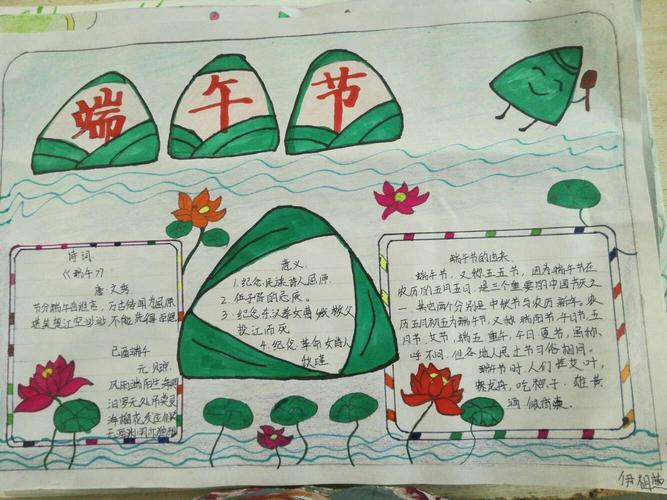 端午节
诗词
《端午》
唐·文秀
节分端午自谁言，万古传闻为屈原
堪笑楚江空渺渺，不能洗得
己酉端午
元·贝琼
风雨端阳生
汨罗无处吊英灵
海榴花发应
意义
1. 纪念民族诗人屈原
2. 伍子胥的忌辰。
3. 纪念东汉孝女曹娥救父
投江而死
4. 纪念革命女诗人
秋瑾
端午节的由来
端午节，又称五五节，因为端午节在
农历的五月五日，是三个重要的中国庆之
一，其他两个分别是中秋节与农历新年。农
历五月初五为端午节，又称端阳节、午日节，五
月节，女节，端五，重午，午日，夏节，虽称
呼不同，但各地人民过节习俗相同。
端午节时人们在艾叶，
赛龙舟，吃粽子，雄黄
酒